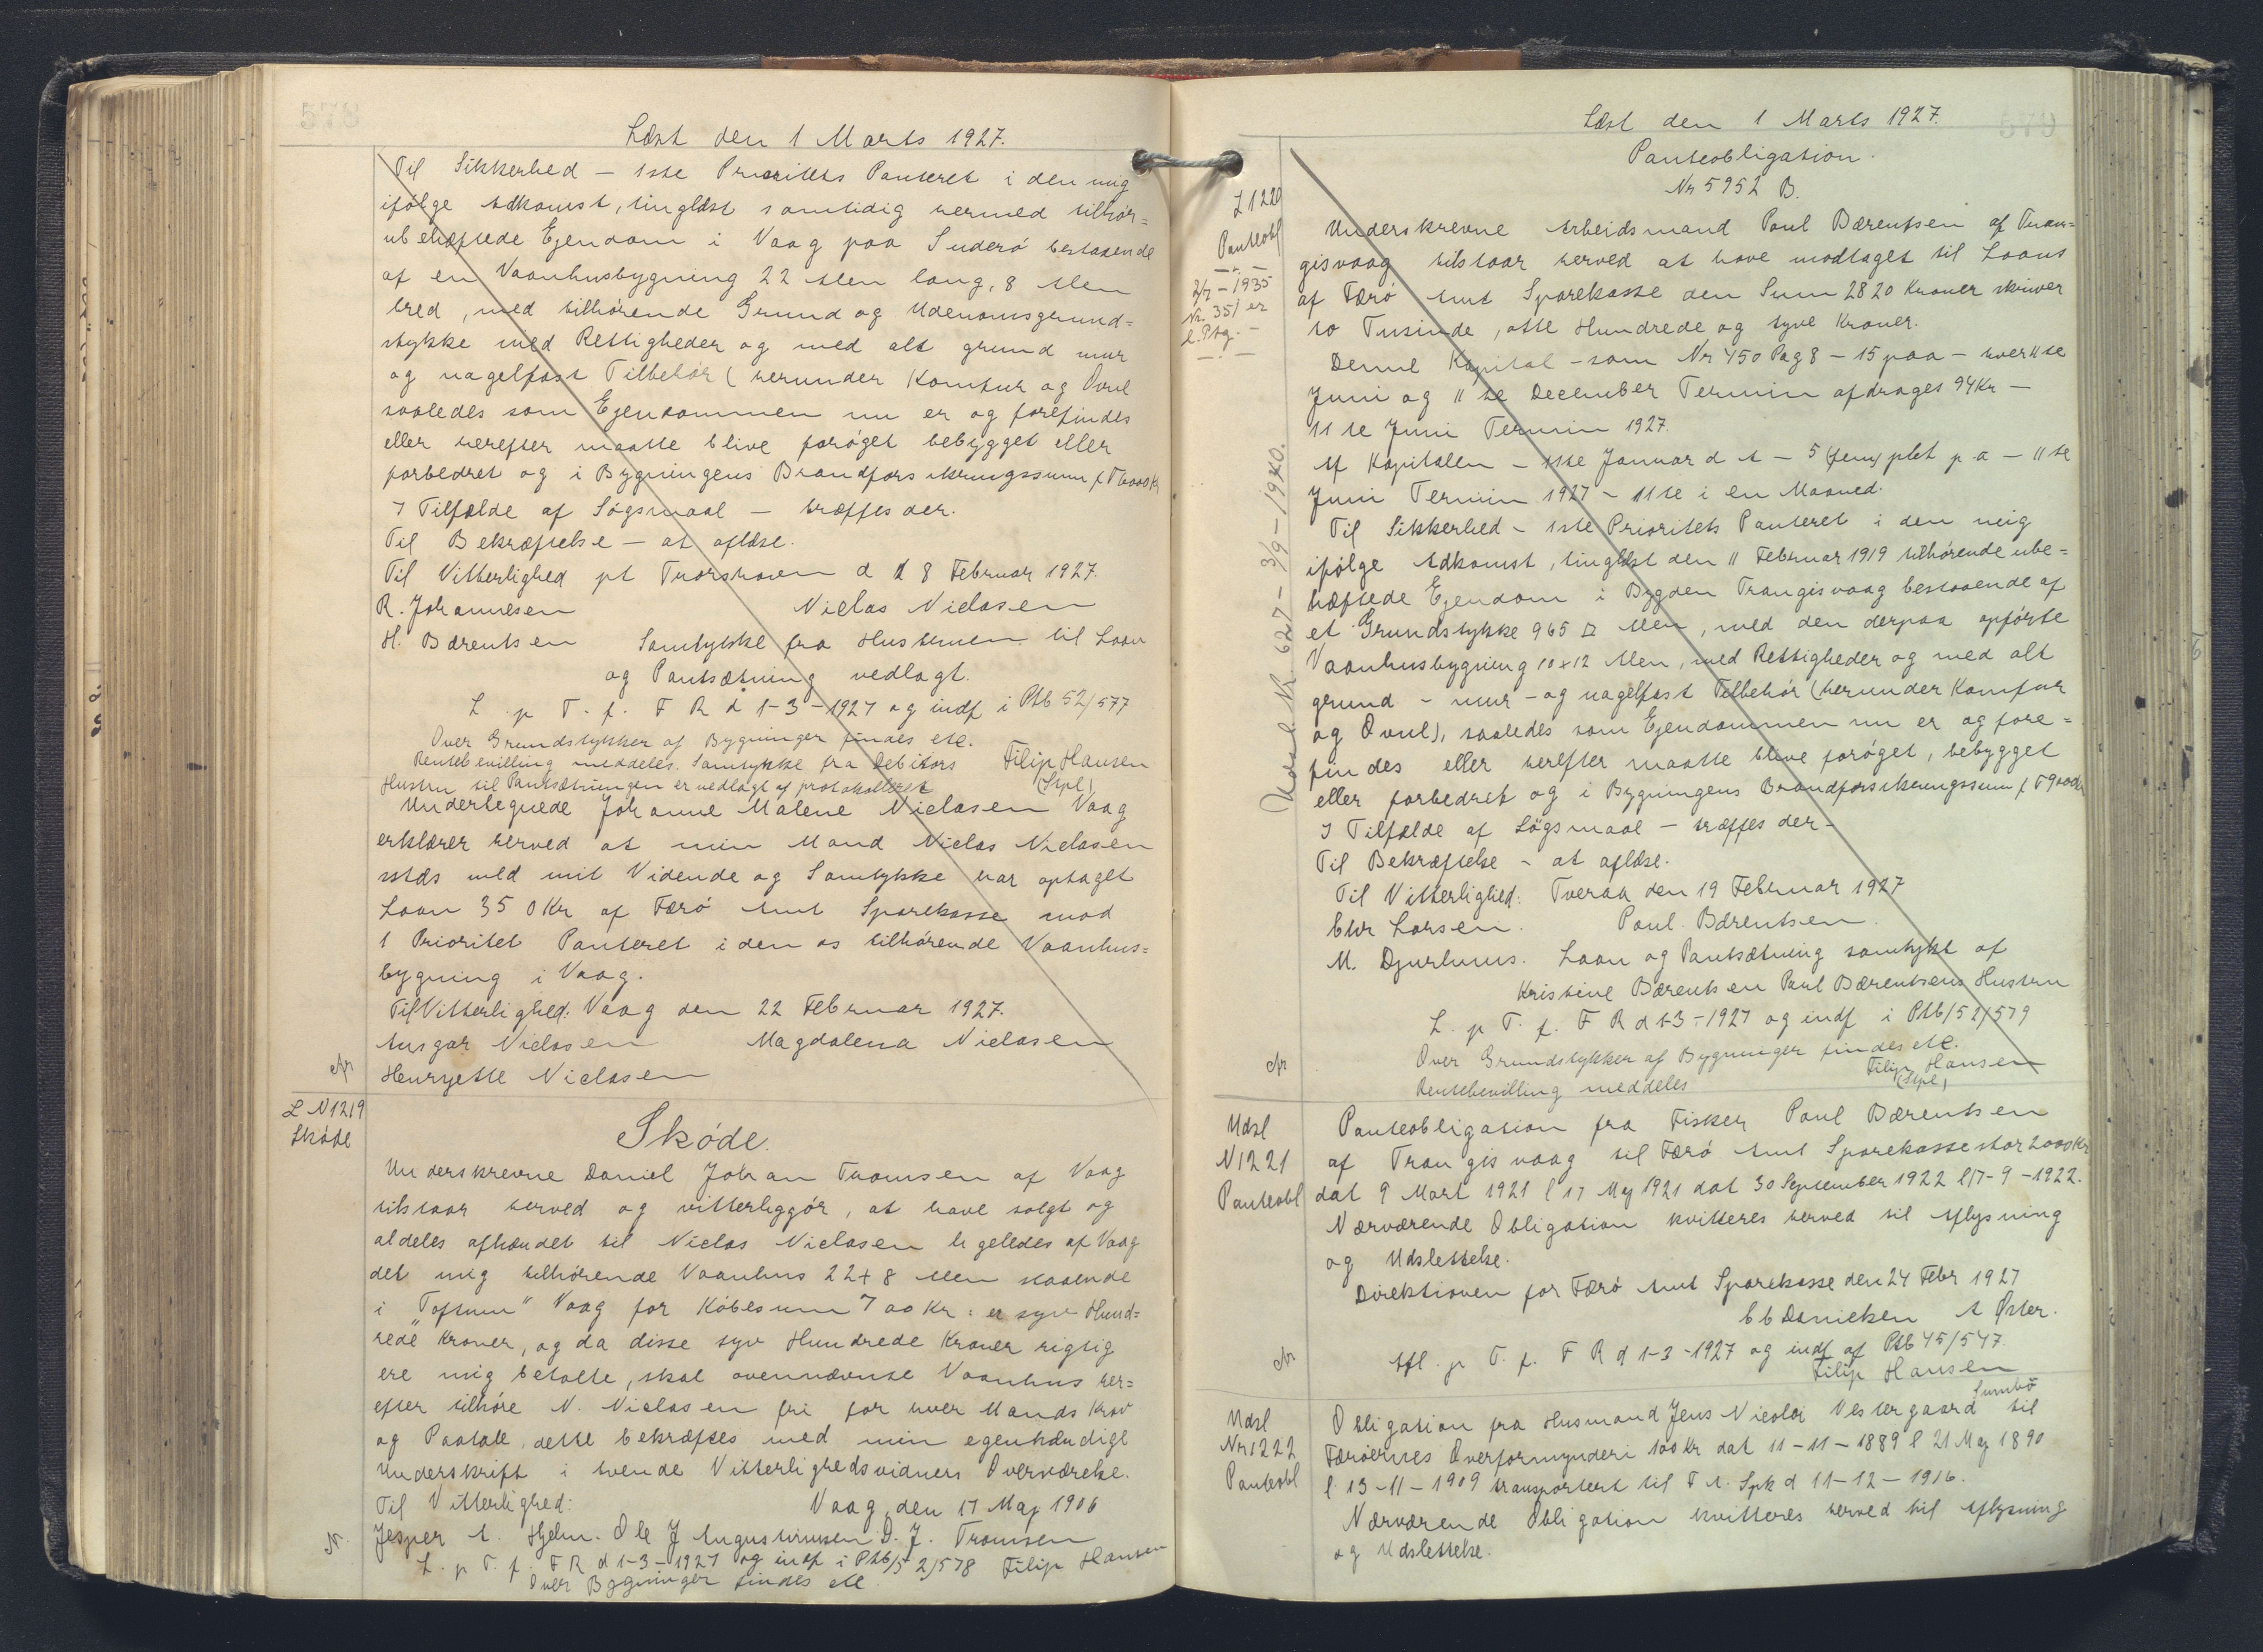 578
Læst den 1 Marts 1927.
Til Sikkerhed – 1ste Prioritets Panteret i den mig
ifølge Adkomst, tinglæst samtidig hermed tilhør=
ubehæftede Ejendom i Vaag paa Suderö bestaaende
af en Vaanhusbygning 22 Alen lang, 8 Alen
bred, med tilhörende Grund og Udenomsgrund=
stykke med Rettigheder og med alt grund mur
og nagelfast Tilbehör (herunder Komfur og Ovne
saaledes som Ejendommen nu er og forefindes
eller herefter maatte blive forøget bebygget eller
forbedret og i Bygningens Brandforsikringssum f T 6000 Kr
I Tilfælde af Sögsmaal – træffes der.
Til Bekræftelse – at aflæse.
Til Vitterlighed pt Thorshavn d 8 Februar 1927.
R. Johannesen Niclas Niclasen
H. Bærentsen Samtykke fra Hustruen til Laan
og Pantsætning vedlagt.
L. p T. f. F R d 1-3-1927 og indf i Ptb 52/577
Over Grundstykker af Bygninger findes etc.
Rentebevilling meddeles. Samtykke fra Debitors Filip Hansen
Hustru til Pantsætningen er vedlagt og protokolleret (Spl)
Undertegnede Johanne Malene Niclasen Vaag
erklærer herved at min Mand Niclas Niclasen
sstds med mit Vidende og Samtykke har optaget
Laan 350 Kr af Færö Amt Sparekasse mod
1 Prioritet Panteret i den os tilhörende Vaanhus=
bygning i Vaag.
Til Vitterlighed: Vaag den 22 Februar 1927.
Ansgar Niclasen Magdalena Nielasen
Henryette Niclasen
L N 1219
Sköde
Sköde.
Underskrevne Daniel Johan Thomsen af Vaag
tilstaar herved og vitterliggör, at have solgt og
aldeles afhændet til Niclas Niclasen ligeledes af Vaag
det mig tilhörende Vaanhus 22 + 8 Alen staaende
i "Toftum" Vaag for Köbesum 700 Kr: er syv Hund=
rede Kroner, og da disse syv Hundrede Kroner rigtig
ere mig betalte, skal ovennævnte Vaanhus her=
efter tilhöre N. Niclasen fri for hver Mands Krav
og Paatale, dette bekræftes med min egenhændige
Underskrift i tvende Vitterlighedsvidners Overværelse.
Til Vitterlighed: Vaag, den 17 Maj 1906
Jesper A. Hjelm. Ole J Augustinussen D. J. Thomsen
L. p T. f. F R d 1-3-1927 og indf i Ptb/52/578 Filip Hansen
Over Bygninger findes etc
579
Læst den 1 Marts 1927.
Panteobligation.
Nr 5952 B.
L 1220
Panteobl
2/7 – 1935
Nr. 351 er
Udsl. Nr 627 – 3/9 – 1940.
Underskrevne Arbeidsmand Poul Bærentsen af Tran=
gisvaag tilstaar herved at have modtaget til Laans
af Færö Amt Sparekasse den Sum 2820 Kroner skriver
to Tusinde, otte Hundrede og tyve Kroner.
Denne Kapital – som Nr 450 Pag 8 – 15 paa – hver 11te
Juni og 11te December Termin afdrages 94 Kr –
11te Juni Termin 1927.
Af Kapitalen – 11te Januar d A – 5 (fem) pCt p a – 11te
Juni Termin 1927 – 11te i en Maaned.
Til Sikkerhed – 1ste Prioritets Panteret i den mig
ifølge Adkomst, tinglæst den 11 Februar 1919 tilhörende ube=
hæftede Ejendom i Bygden Trangisvaag bestaaende af
et Grundstykke 965 □ Alen, med den derpaa opförte
Vaanhusbygning 10 x 12 Alen, med Rettigheder og med alt
grund – mur – og nagelfast Tilbehör (herunder Komfur
og Ovne), saaledes som Ejendommen nu er og fore=
findes eller herefter maatte blive foröget, bebygget
eller forbedret og i Bygningens Brandforsikringssum f T 9000 Kr
I Tilfælde af Sögsmaal – træffes der –
Til Bekræftelse – at aflæse.
Til Vitterlighed: Tveraa den 19 Februar 1927
Chr Larsen. Poul Bærentsen.
M. Djurhuus. Laan og Pantsætning samtykt af
Kristine Bærentsen Poul Bærentsens Hustru
L. p T. f. F R d 1-3-1927 og indf i Ptb/52/579
Over Grundstykker af Bygninger findes etc.
Rentebevilling meddeles Filip Hansen
(Spl)
Udsl
N 1221
Panteobl
Panteobligation fra Fisker Poul Bærentsen
af Trangisvaag til Færö Amt Sparekasse stor 2000 Kr
dat 9 Mart 1921 l 17 Maj 1921 dat 30 September 1922 l 17-9-1922.
Nærværende Obligation kvitteres herved til Aflysning
og Udslettelse.
Direktionen for Færö Amt Sparekasse den 24 Febr 1927
C C Danielsen A Øster.
Afl. p T. f. F R d 1-3-1927 og indf af Ptb 45/547.
Filip Hansen
Udsl
Nr 1222
Panteobl
Obligation fra Husmand Jens Nicolai Vestergaard Sumbö til
Færöernes Overformynderi 100 Kr dat 11-11-1889 l 21 Maj 1890
l. 13-11-1909 transporteret til F A. Spk d 11-12-1916.
Nærværende Obligation kvitteres herved til Aflysning
og Udslettelse.